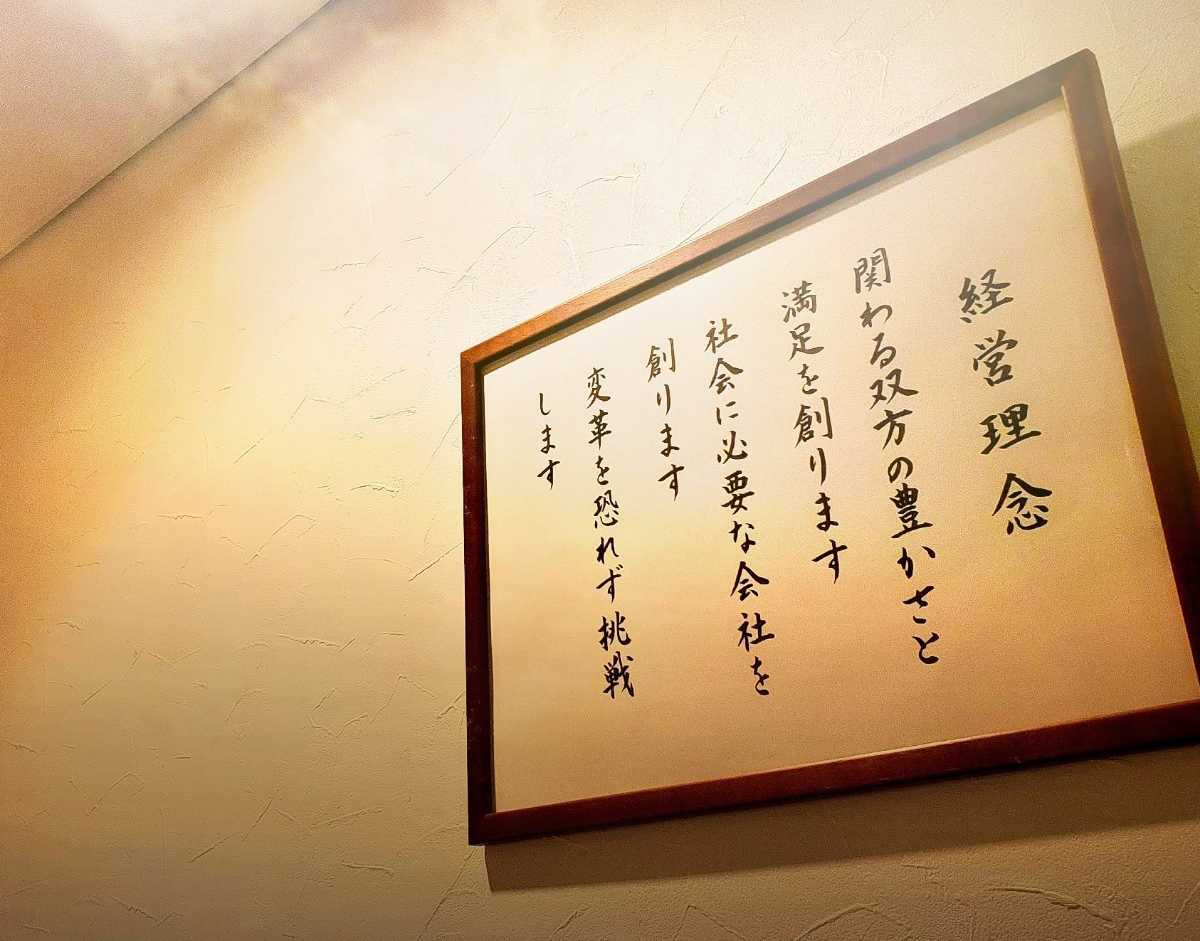 経営理念
関わる双方の豊かさと
満足を創ります
社会に必要な会社を
創ります
変革を恐れず挑戦
します